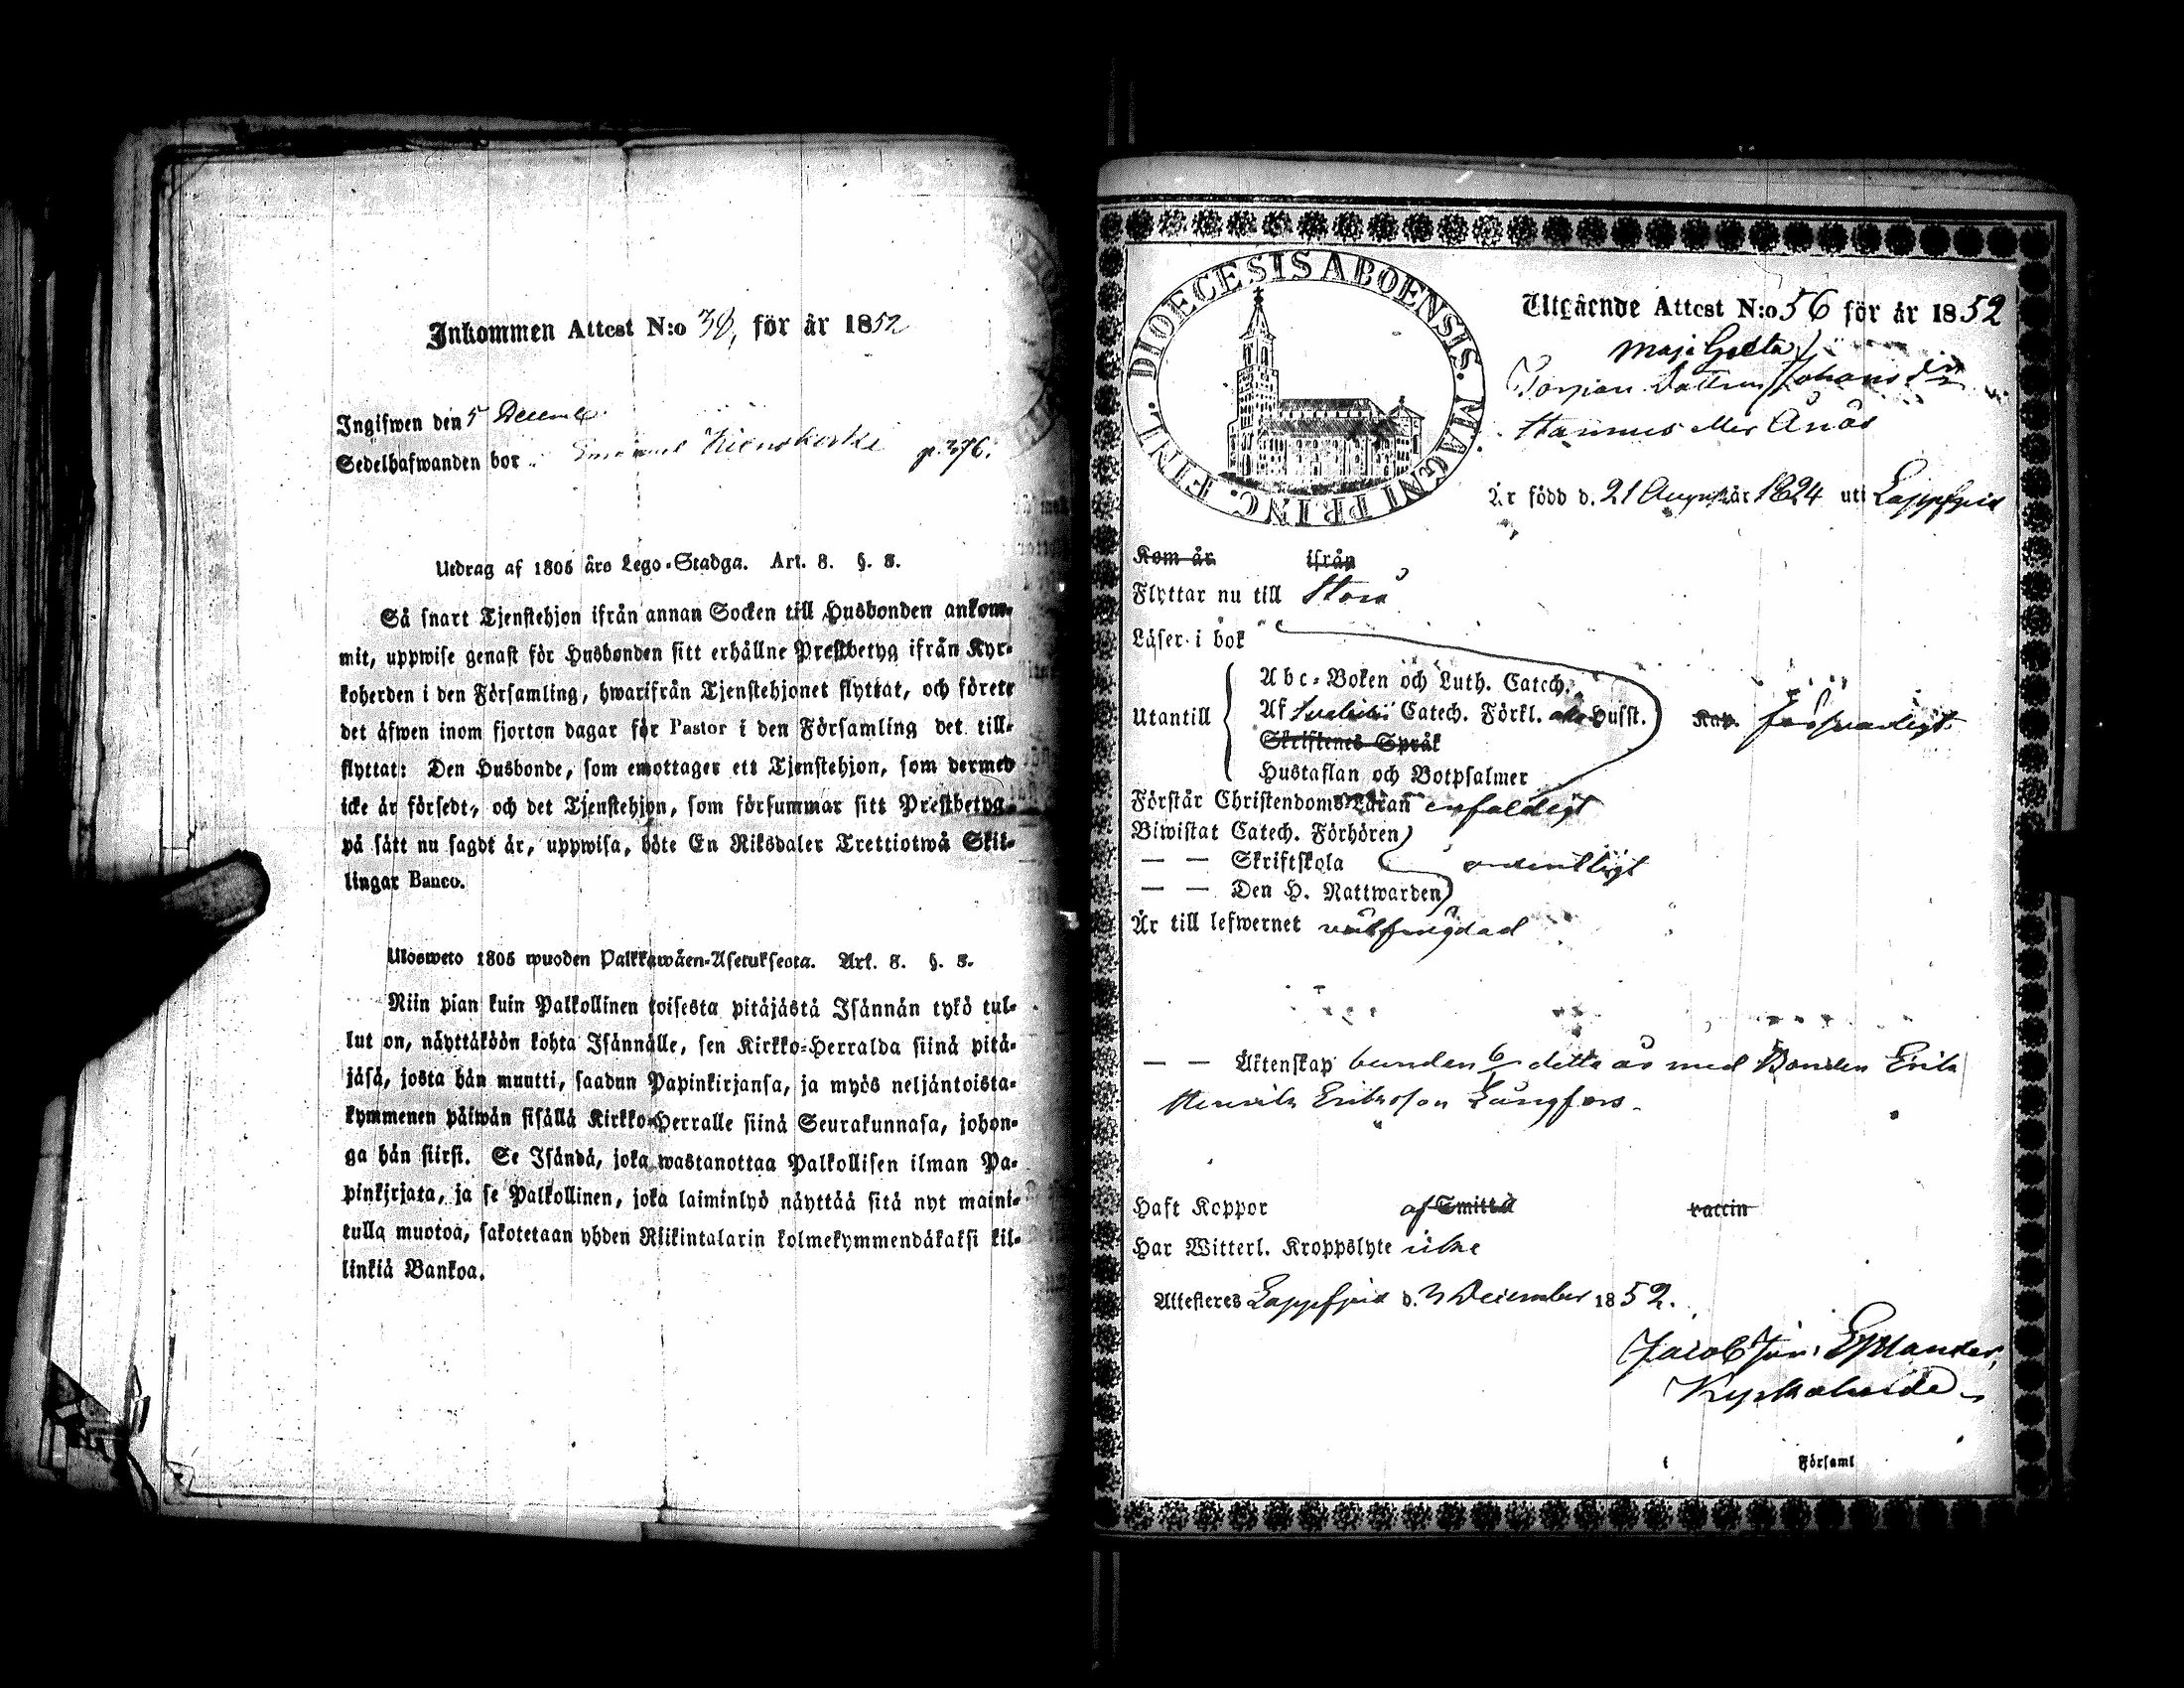 Inkommen Attest N:o 38, för år 1852
Ingifwen den 5 Decemb.
Sedelhafwanden bor p. 376.
Utdrag af 1805 års Lego-Stadga. Art. 8. §. 8.
Så snart Tjenstehjon ifrån annan Socken till Husbonden ankom-
mit, uppwise genast för Husbonden sitt erhållne Prestbetyg ifrån Kyr-
koherden i den Församling, hwarifrån Tjenstehjonet flyttat, och förete
det äfwen inom fjorton dagar för Pastor i den Församling det till-
flyttat: Den Husbonde, som emottager ett Tjenstehjon, som dermed
icke är försedt, och det Tjenstehjon, som försummar sitt Prestbetyg
på sätt nu sagdt är, uppwisa, böte En Riksdaler Trettiotwå Skil-
lingar Banco.
Ulosweto 1805 wuoden Palkkawäen-Asetuksesta. Art. 8. §. 8.
Niin pian kuin Palkollinen toisesta pitäjästä Isännän tykö tul-
lut on, näyttäköön kohta Isännälle, sen Kirkko-Herralda siinä pitä-
jäsä, josta hän muutti, saadun Papinkirjansa, ja myös neljäntoista-
kymmenen päiwän sisällä Kirkko-Herralle siinä Seurakunnasa, johon-
ga hän siirsi. Se Isändä, joka wastanottaa Palkollisen ilman Pa-
pinkirjata, ja se Palkollinen, joka laiminlyö näyttää sitä nyt maini-
tulla muotoa, sakotetaan yhden Riikintalarin kolmekymmendäkaksi kil-
linkiä Bankoa.
DIOECESIS ABOENSIS. MAGNI PRINC. FINL.
Utgående Attest N:o 56 för år 1852
Maja Greta
Torpare dottren Johans dr
Hannus eller Ånäs
Är född d. 21 August år 1824 uti Lappfjerd
Kom år ifrån
Flyttar nu till Storå
Läser i bok
Abc-Boken och Luth. Catech.
Utantill Af Svebelii Catech. Förkl. Husst. försvarligt
Skriftenes Språk
Hustaflan och Botpsalmer
Förstår Christendoms Läran enfaldigt
Biwistat Catech. Förhören
— — Skriftskola ordentligt
— — Den H. Nattwarden
Är till lefwernet välfrejdad
— — Äktenskap bunden detta år med Bonden Erik
Henrik Eriksson Långfors.
Haft Koppor af Smitta vaccin
Har Witterl. Kroppslyte icke
Attesteres Lappfjerd d. 3 December 1852.
Jacob Estlander,
Kyrkoherde
i Församl